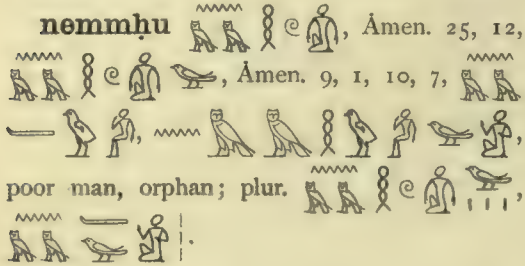 nemmḥu 𓈖𓅓𓅓𓎛𓏲, Ȧmen. 25, 12,
𓈖𓅓𓅓𓎛𓏲 𓅪, Ȧmen. 9, 1, 10, 7, 𓈖𓅓𓅓
𓅱𓀁, 𓈖𓅓𓅓𓎛𓅱𓀁𓅪,
poor man, orphan; plur. 𓈖𓅓𓅓𓎛𓏲 𓅪𓏥,
𓈖𓅓𓅓 𓅪 .